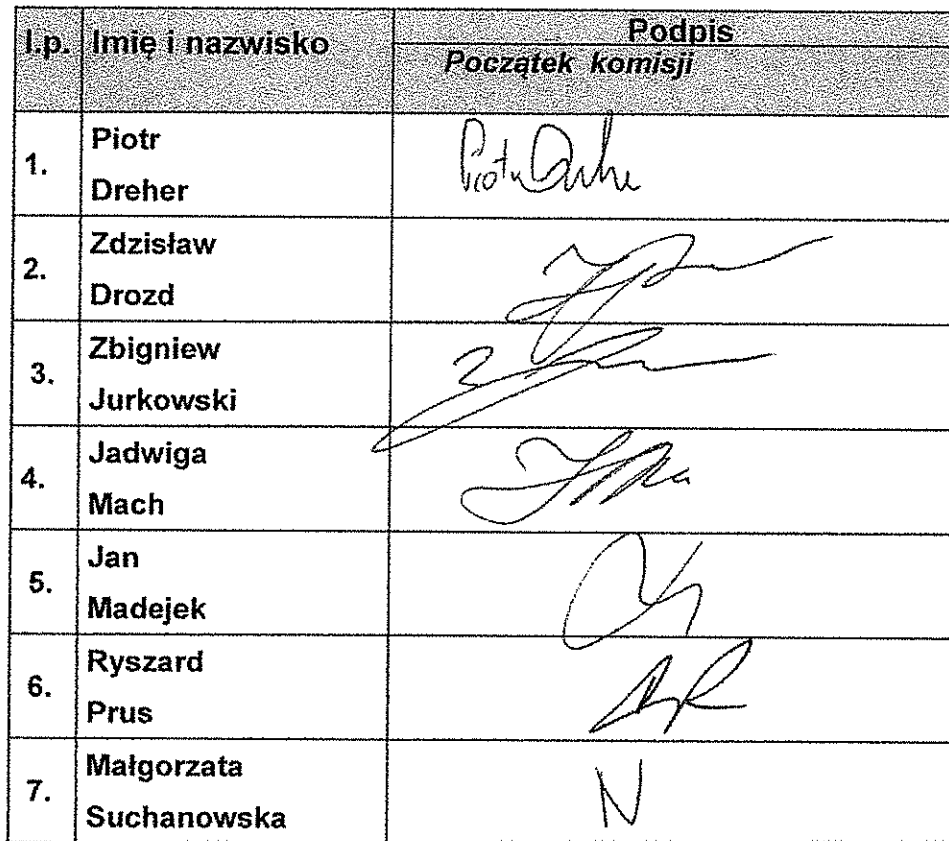 l.p. Imię i nazwisko Podpis
Początek komisji
1. Piotr
Dreher
2. Zdzisław
Drozd
3. Zbigniew
Jurkowski
4. Jadwiga
Mach
5. Jan
Madejek
6. Ryszard
Prus
7. Małgorzata
Suchanowska
N